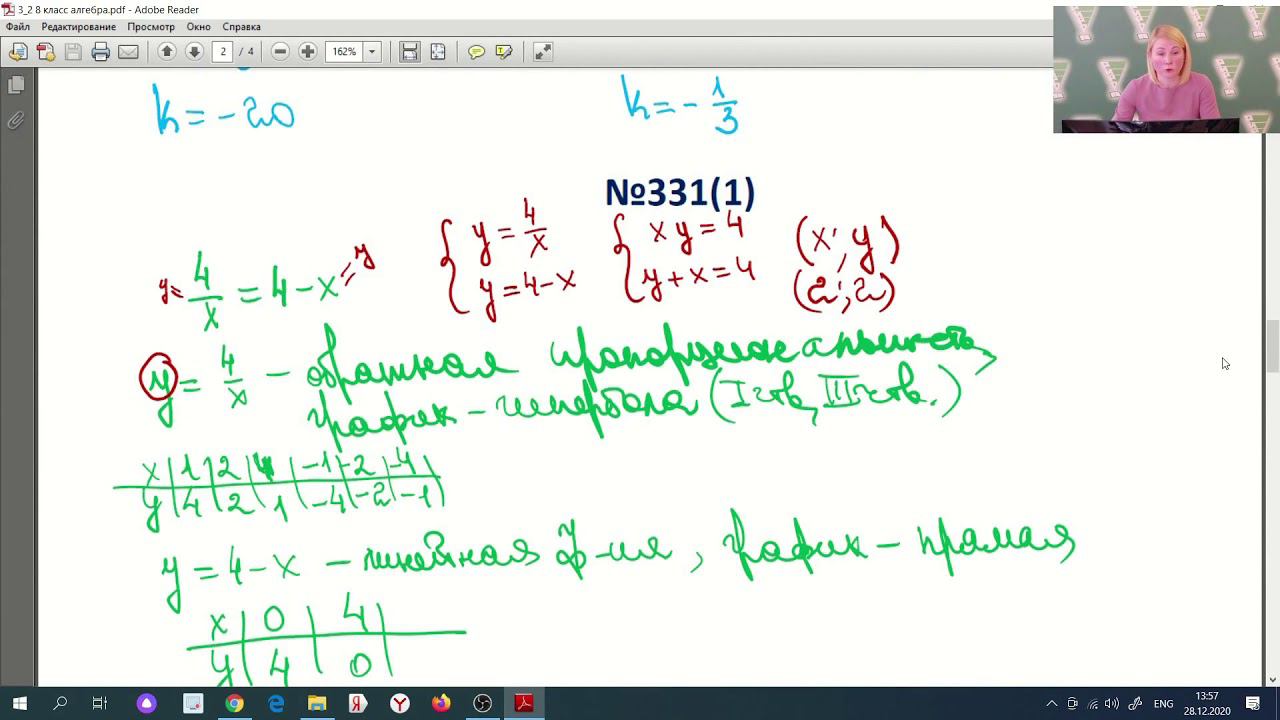 3_2 8 класс алгебра.pdf - Adobe Reader
Файл Редактирование Просмотр Окно Справка
2 / 4 162%
k = -20 k = - 1/3
№331(1)
{ y = 4/x { xy = 4 (x; y)
{ y = 4-x { y+x = 4 (2; 2)
y = 4/x = 4-x = y
y = 4/x - обратная пропорциональность,
график - гипербола (I четв, III четв.)
x | 1 | 2 | 4 | -1 | -2 | -4 |
y | 4 | 2 | 1 | -4 | -2 | -1 |
y = 4-x - линейная ф-ия, график - прямая
x | 0 | 4 |
y | 4 | 0 |
ENG 13:57
28.12.2020